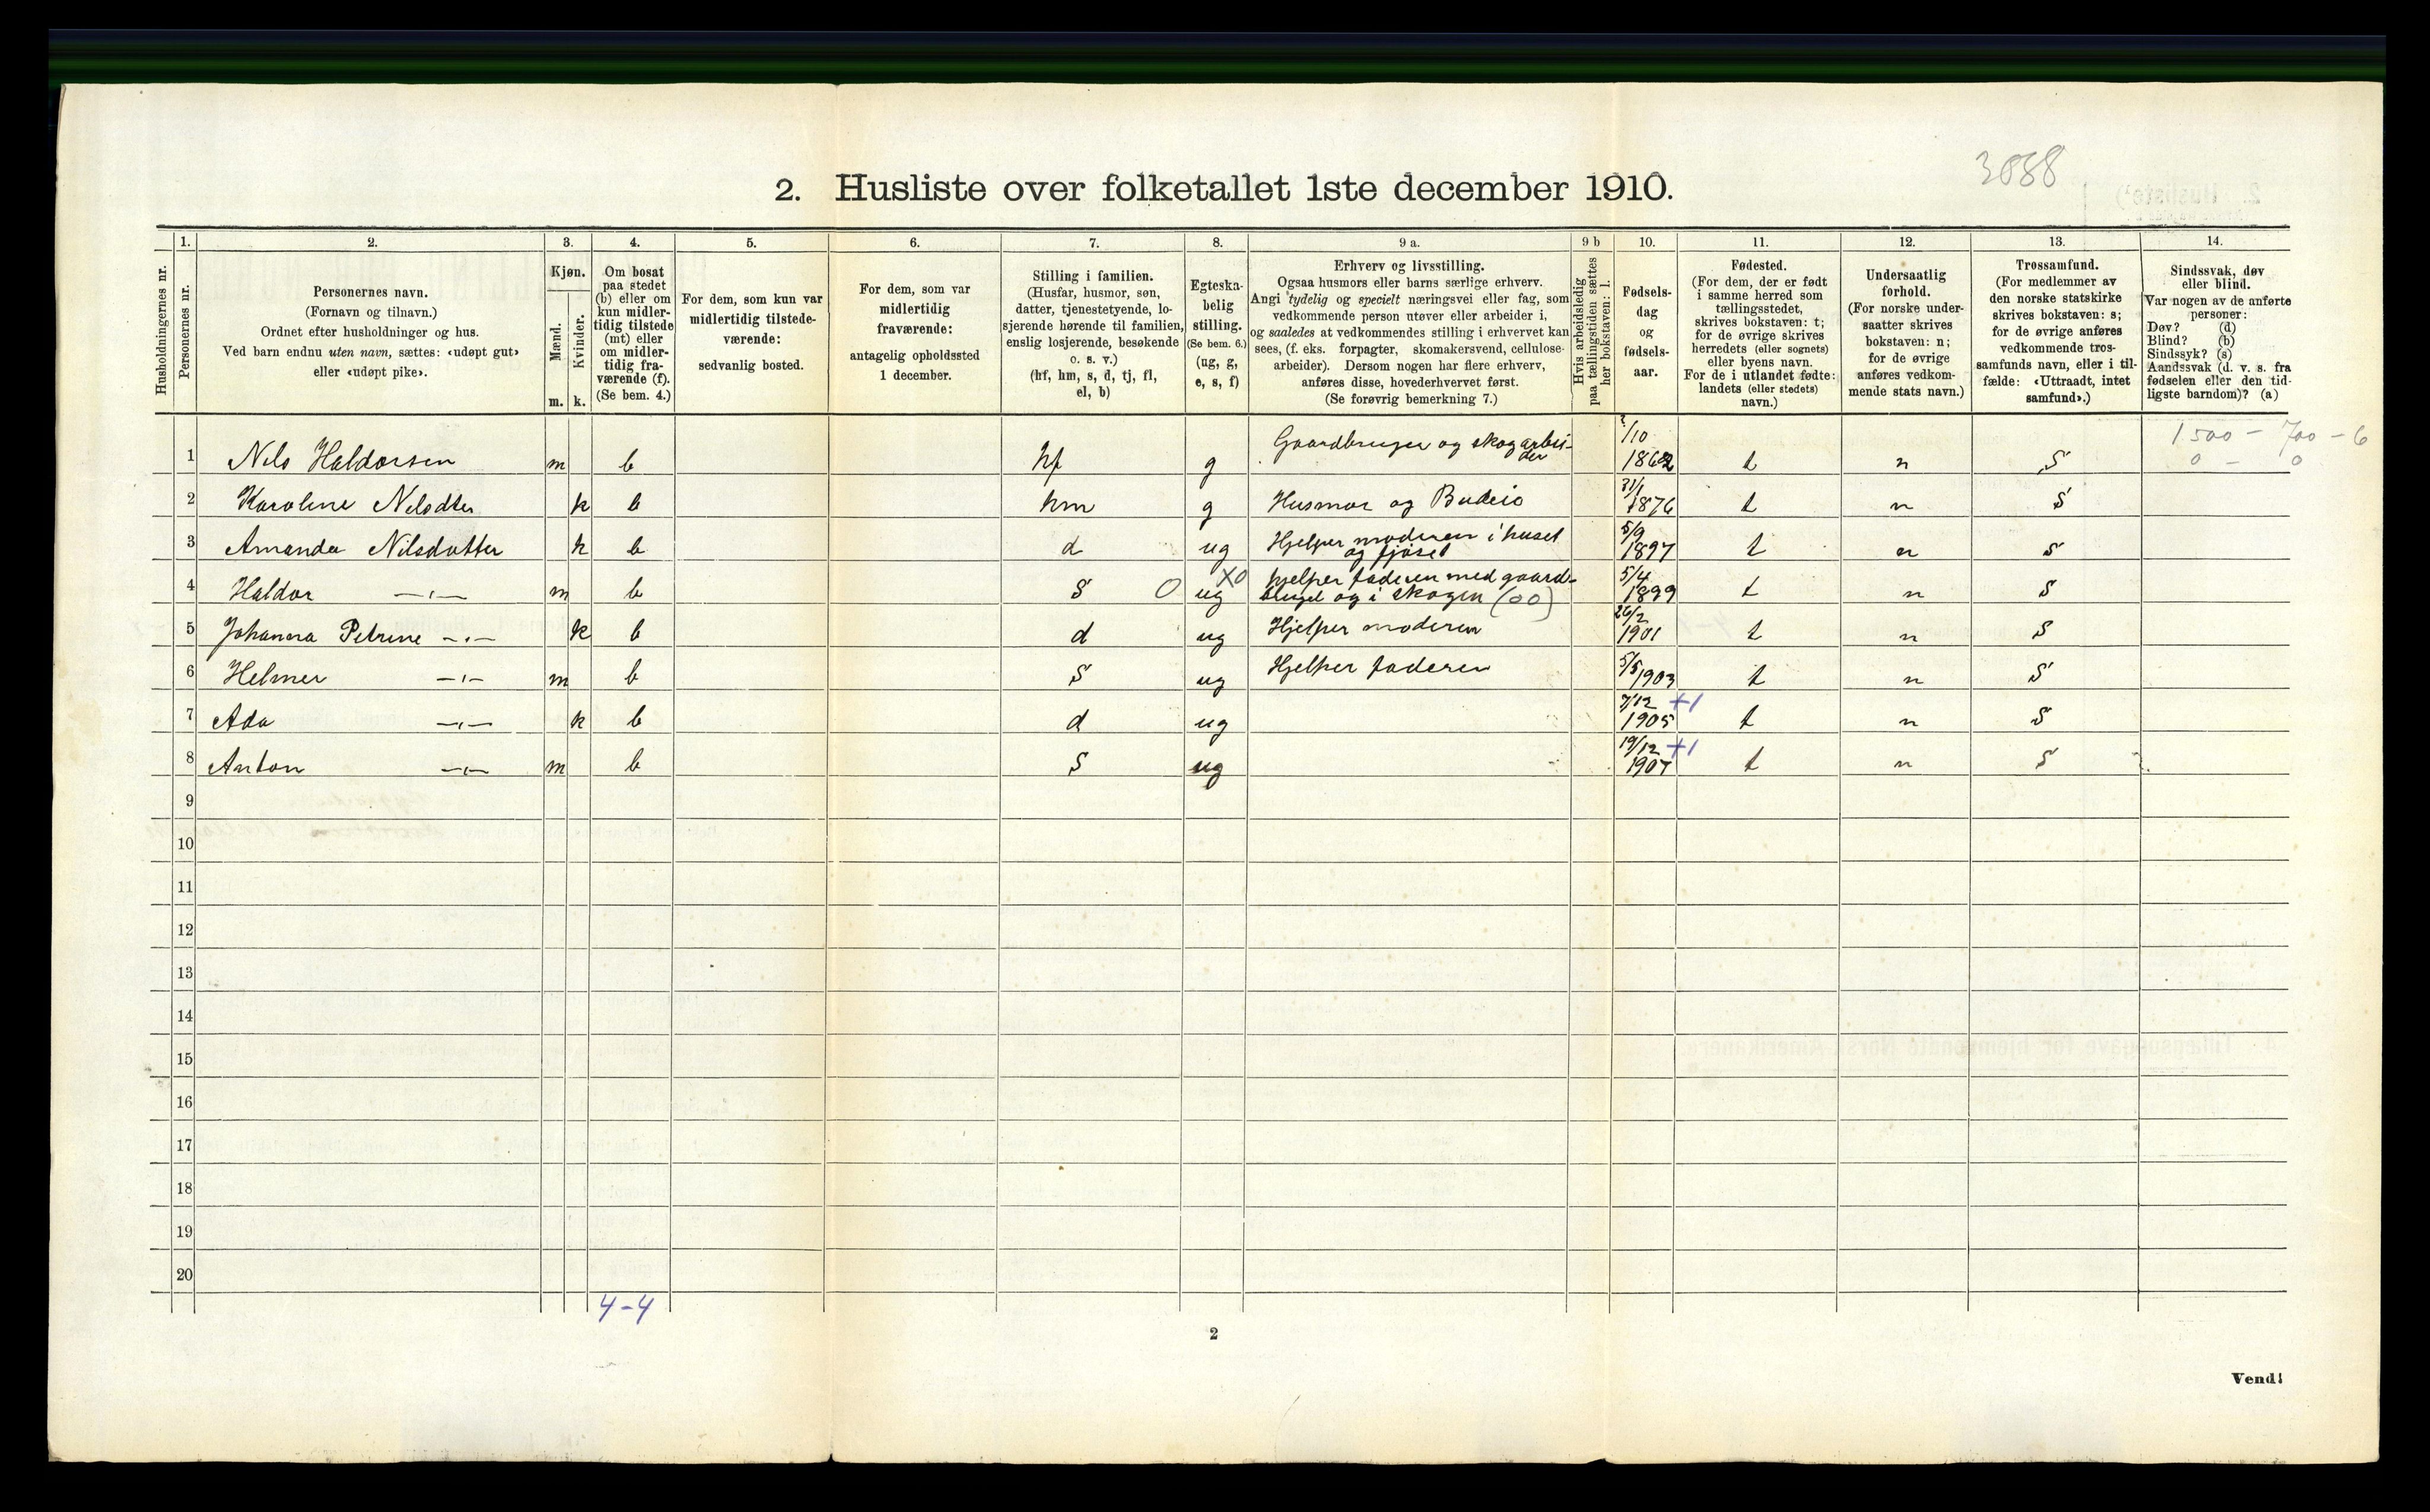 3088
2. Husliste over folketallet 1ste december 1910.
Husholdningernes nr.
1.
Personernes nr.
2.
Personernes navn.
(Fornavn og tilnavn.)
Ordnet efter husholdninger og hus.
Ved barn endnu uten navn, sættes: «udøpt gut»
eller «udøpt pike».
3.
Kjøn.
Mænd.
Kvinder.
m. k.
4.
Om bosat
paa stedet
(b) eller om
kun midler-
tidig tilstede
(mt) eller
om midler-
tidig fra-
værende (f).
(Se bem. 4.)
5.
For dem, som kun var
midlertidig tilstede-
værende:
sedvanlig bosted.
6.
For dem, som var
midlertidig
fraværende:
antagelig opholdssted
1 december.
7.
Stilling i familien.
(Husfar, husmor, søn,
datter, tjenestetyende, lo-
sjerende hørende til familien,
enslig losjerende, besøkende
o. s. v.)
(hf, hm, s, d, tj, fl,
el, b)
8.
Egteska-
belig
stilling.
(Se bem. 6.)
(ug, g,
e, s, f)
9 a.
Erhverv og livsstilling.
Ogsaa husmors eller barns særlige erhverv.
Angi tydelig og specielt næringsvei eller fag, som
vedkommende person utøver eller arbeider i,
og saaledes at vedkommendes stilling i erhvervet kan
sees, (f. eks. forpagter, skomakersvend, cellulose-
arbeider). Dersom nogen har flere erhverv,
anføres disse, hovederhvervet først.
(Se forøvrig bemerkning 7.)
9 b
Hvis arbeidsledig
paa tællingstiden sættes
her bokstaven: l.
10.
Fødsels-
dag
og
fødsels-
aar.
11.
Fødested.
(For dem, der er født
i samme herred som
tællingsstedet,
skrives bokstaven: t;
for de øvrige skrives
herredets (eller sognets)
eller byens navn.
For de i utlandet fødte:
landets (eller stedets)
navn.)
12.
Undersaatlig
forhold.
(For norske under-
saatter skrives
bokstaven: n;
for de øvrige
anføres vedkom-
mende stats navn.)
13.
Trossamfund.
(For medlemmer av
den norske statskirke
skrives bokstaven: s;
for de øvrige anføres
vedkommende tros-
samfunds navn, eller i til-
fælde: «Uttraadt, intet
samfund».)
14.
Sindssvak, døv
eller blind.
Var nogen av de anførte
personer:
Døv? (d)
Blind? (b)
Sindssyk? (s)
Aandssvak (d. v. s. fra
fødselen eller den tid-
ligste barndom)? (a)
1500 - 700 - 6
0 - 0
1 Nils Haldorsen m b hf g Gaardbruger og skogarbei-
der /10 1862 t n S
2 Karoline Nilsdter k b hm g Husmor og Budeie 31/1 1876 t n S
3 Amanda Nilsdatter k b d ug Hjelper moderen i huset
og fjøset 5/9 1897 t n S
4 Haldor -"- m b S 0 ug X0 hjelper faderen med gaard-
bruget og i skogen (00) 5/4 1899 t n S
5 Johanna Petrine -"- k b d ug Hjelper moderen 26/2 1901 t n S
6 Helmer -"- m b S ug Hjelper faderen 5/5 1903 t n S
7 Ada -"- k b d ug 7/12 +1 1905 t n S
8 Anton -"- m b S ug 19/12 +1 1907 t n S
9
10
11
12
13
14
15
16
17
18
19
20
4-4
2
Vend!